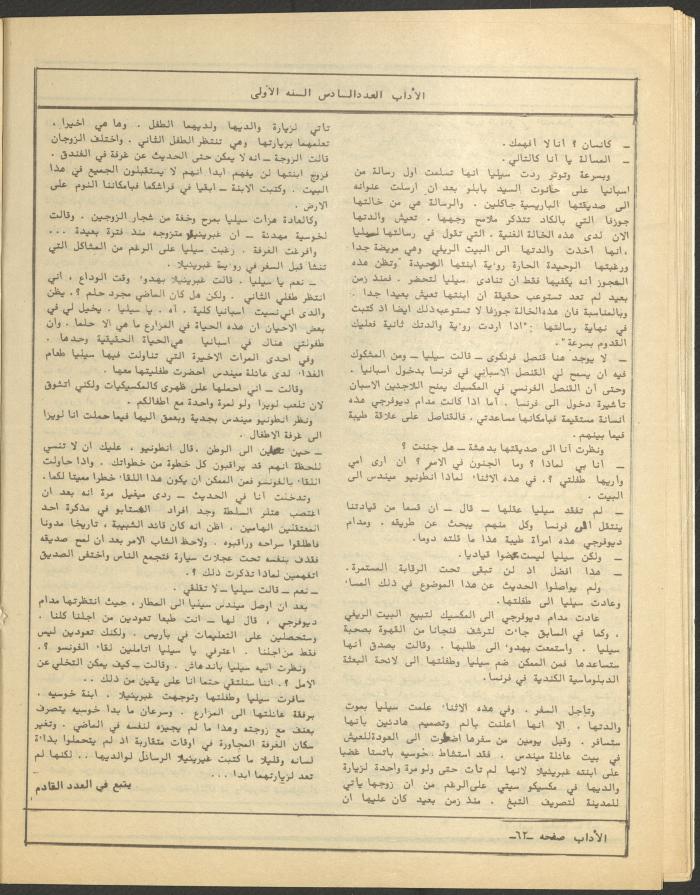 الآداب العدد السادس السنه الأولى
ـ كانسان ؟ انا لا افهمك .
ـ المسالة يا أنا كالتالي .
وبسرعة وتوتر ردت سيليا انها تسلمت اول رسالة من
اسبانيا على حانوت السيد بابلو بعد ان ارسلت عنوانه
الى صديقتها الباريسية جاكلين . والرسالة هي من خالتها
جوزفا التي بالكاد تتذكر ملامح وجهها . تعيش والدتها
الان لدى هذه الخالة الغنية . التي تقول في رسالتها لسيليا
، انها اخذت والدتها الى البيت الريفي وهي مريضة جدا
ورغبتها الوحيدة الحارة روئية ابنتها الوحيدة "وتظن هذه
العجوز انه يكفيها فقط ان تنادى سيليا لتحضر . فمنذ زمن
بعيد لم تعد تستوعب حقيقة ان ابنتها تعيش بعيدا جدا .
وبالمناسبة فان هذه الخالة جوزفا لا تستوعبه ذلك ايضا اذ كتبت
في نهاية رسالتها : "اذا اردت روئية والدتك ثانية فعليك
القدوم بسرعة" .
ـ لا يوجد هنا قنصل فرنكوى ـ قالت سيليا ـ ومن المشكوك
فيه ان يسمح لي القنصل الاسباني في فرنسا بدخول اسبانيا .
وحتى ان القنصل الفرنسي في المكسيك يمنح اللاجئين الاسبان
تأشيرة دخول الى فرنسا . أما اذا كانت مدام ديوفرجي هذه
انسانة مستقيمة فبامكانها مساعدتي . فالقناصل على علاقة طيبة
فيما بينهم .
ونظرت أنا الى صديقتها بدهشة ـ هل جننت ؟
ـ أنا بي لماذا ؟ وما الجنون في الامر ؟ ان ارى امي
واريها طفلتي ؟. في هذه الاثناء لماذا انطونيو ميندس الى
البيت .
ـ لم تفقد سيليا عقلها ـ قال ـ ان قسما من قيادتنا
ينتقل الى فرنسا وكل منهم يبحث عن طريقه . ومدام
ديوفرجي هذه امرأة طيبة هذا ما قلته دوما .
ـ ولكن سيليا ليست عضوا قياديا .
ـ هذا افضل اذ لن تبقى تحت الرقابة المستمرة .
ولم يواصلوا الحديث عن هذا الموضوع في ذلك المساء
وعادت سيليا الى طفلتها .
عادت مدام ديوفرجي الى المكسيك لتبيع البيت الريفي
. وكما في السابق جاءت لترشف فنجانا من القهوة بصحبة
سيليا . واستمعت بهدوء الى طلبها . وقالت بصدق أنها
ستساعدها فمن الممكن ضم سيليا وطفلتها الى لائحة البعثة
الدبلوماسية الكندية في فرنسا .
وتأجل السفر . وفي هذه الاثناء علمت سيليا بموت
والدتها . الا انها اعلنت بألم وتصميم هادئين بأنها
ستسافر . وقبل يومين من سفرها اضطرت الى العودة للعيش
في بيت عائلة ميندس . فقد استشاط خوسيه باتستا غضبا
على ابنته غبرينيلا لانها لم تأت حتى ولو مرة واحدة لزيارة
والديها في مكسيكو سيتي على الرغم من ان زوجها يأتي
للمدينة لتصريف التبغ . منذ زمن بعيد كان عليها ان
تأتي لزيارة والديها ولديهما الطفل . وها هي اخيرا ،
تعلمهما بزيارتها وهي تنتظر الطفل الثاني . واختلف الزوجان
قالت الزوجة ـ انه لا يمكن حتى الحديث عن غرفة في الفندق .
فزوج ابنتها لن يفهم ابدا انهم لا يستقبلون الجميع في هذا
البيت . وكتبت الابنة ـ ابقيا في فراشكما فبامكاننا النوم على
الارض .
وكالعادة هزأت سيليا بمرح وخفة من شجار الزوجين . وقالت
لخوسية مهدئة ـ ان غبرينيلا متزوجه منذ فترة بعيدة ...
وافرغت الغرفة . رغبت سيليا على الرغم من المشاكل التي
تنشأ قبل السفر في روئية غبرينيلا .
ـ نعم يا سيليا . قالت غبرينيلا بهدوء وقت الوداع ، أني
انتظر طفلي الثاني . ولكن هل كان الماضي مجرد حلم ؟. يظن
والدى اني نسيت اسبانيا كلية . آه . يا سيليا . يخيل لي في
بعض الاحيان ان هذه الحياة في المزارع ما هي الا حلما . وأن
طفولتي هناك في اسبانيا هي الحياة الحقيقية وحدها .
وفي احدى المرات الاخيرة التي تناولت فيها سيليا طعام
الغذاء لدى عائلة ميندس احضرت طفلتيها معها .
وقالت ـ اني احملها على ظهرى كالمكسيكيات ولكني اتشوق
لان تلعب لويزا ولو لمرة واحدة مع اطفالكم .
ونظر انطونيو ميندس بجدية وبعمق اليها فيما حملت انا لويزا
الى غرفة الاطفال .
ـ حين تصلين الى الوطن . قال أنطونيو ، عليك ان لا تنسي
للحظة انهم قد يراقبون كل خطوة من خطواتك . واذا حاولت
اللقاء بالفونسو فمن الممكن ان يكون هذا اللقاء خطرا مميتا لكما .
وتدخلت أنا في الحديث ـ ردى ميغيل مرة انه بعد ان
اغتصب هتلر السلطة وجد افراد الغستابو في مذكرة احد
المعتقلين الهامين . اظن انه كان قائد الشبيبة ، تأريخا مدونا
فاطلقوا سراحه وراقبوه . ولاحظ الشاب الامر بعد ان لمح صديقه
فقذف بنفسه تحت عجلات سيارة فتجمع الناس واختفى الصديق
اتفهمين لماذا تذكرت ذلك ؟ .
ـ نعم ـ قالت سيليا ـ لا تقلقي .
بعد ان اوصل ميندس سيليا الى المطار ، حيث انتظرتها مدام
ديوفرجي . قال لها ـ أنت طبعا تعودين من اجلنا كلنا .
وستحصلين على التعليمات في باريس . ولكنك تعودين ليس
فقط من اجلنا . اعترفي يا سيليا اتأملين لقاء الفونسو ؟.
ونظرت اليه سيليا باندهاش . وقالت ـ كيف يمكن التخلي عن
الامل ؟. اننا سنلتقي حتما انا على يقين من ذلك ..
سافرت سيليا وطفلتها وتوجهت غبرينيلا . ابنة خوسيه .
برفقة عائلتها الى المزارع . وسرعان ما بدا خوسيه يتصرف
بعنف مع زوجته وهذا ما لم يجيزه لنفسه في الماضي . وتغير
سكان الغرفة المجاورة في اوقات متقاربة اذ لم يتحملوا بذاءة
لسانه وقليلا ما كتبت غبرينيلا الرسائل لوالديها .. لكنها لم
تعد لزيارتهما ابدا ...
يتبع في العدد القادم
الأداب صفحه ـ٦٢ـ